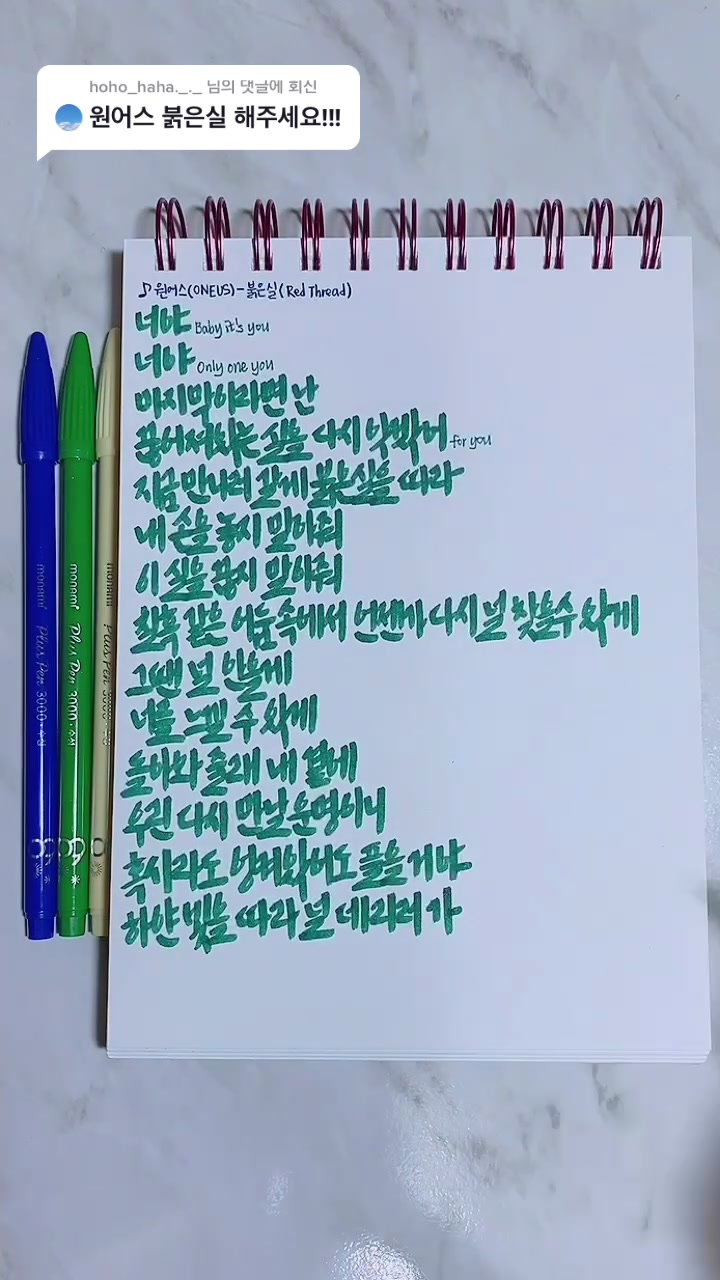 hoho_haha._._ 님의 댓글에 회신
원어스 붉은실 해주세요!!!
♪ 원어스(ONEUS)-붉은실(Red Thread)
너야 Baby it's you
너야 Only one you
마지막이라면 난
끊어져버린 실을 다시 엮었어 for you
지금 만나러 갈게 붉은실을 따라
내 손을 놓지 말아줘
이 실을 끊지 말아줘
칠흑 같은 어둠속에서 언젠가 다시 널 찾을수 있게
그땐 널 안을게
너를 느낄 수 있게
돌아와 줄래 내 곁에
우린 다시 만날 운명이니
혹시라도 엉켜있어도 풀을 거야
하얀 빛을 따라 널 데리러 가
monami Plus Pen 3000 · 수성
monami Plus Pen 3000 · 수성
monami Plus Pen 3000 · 수성